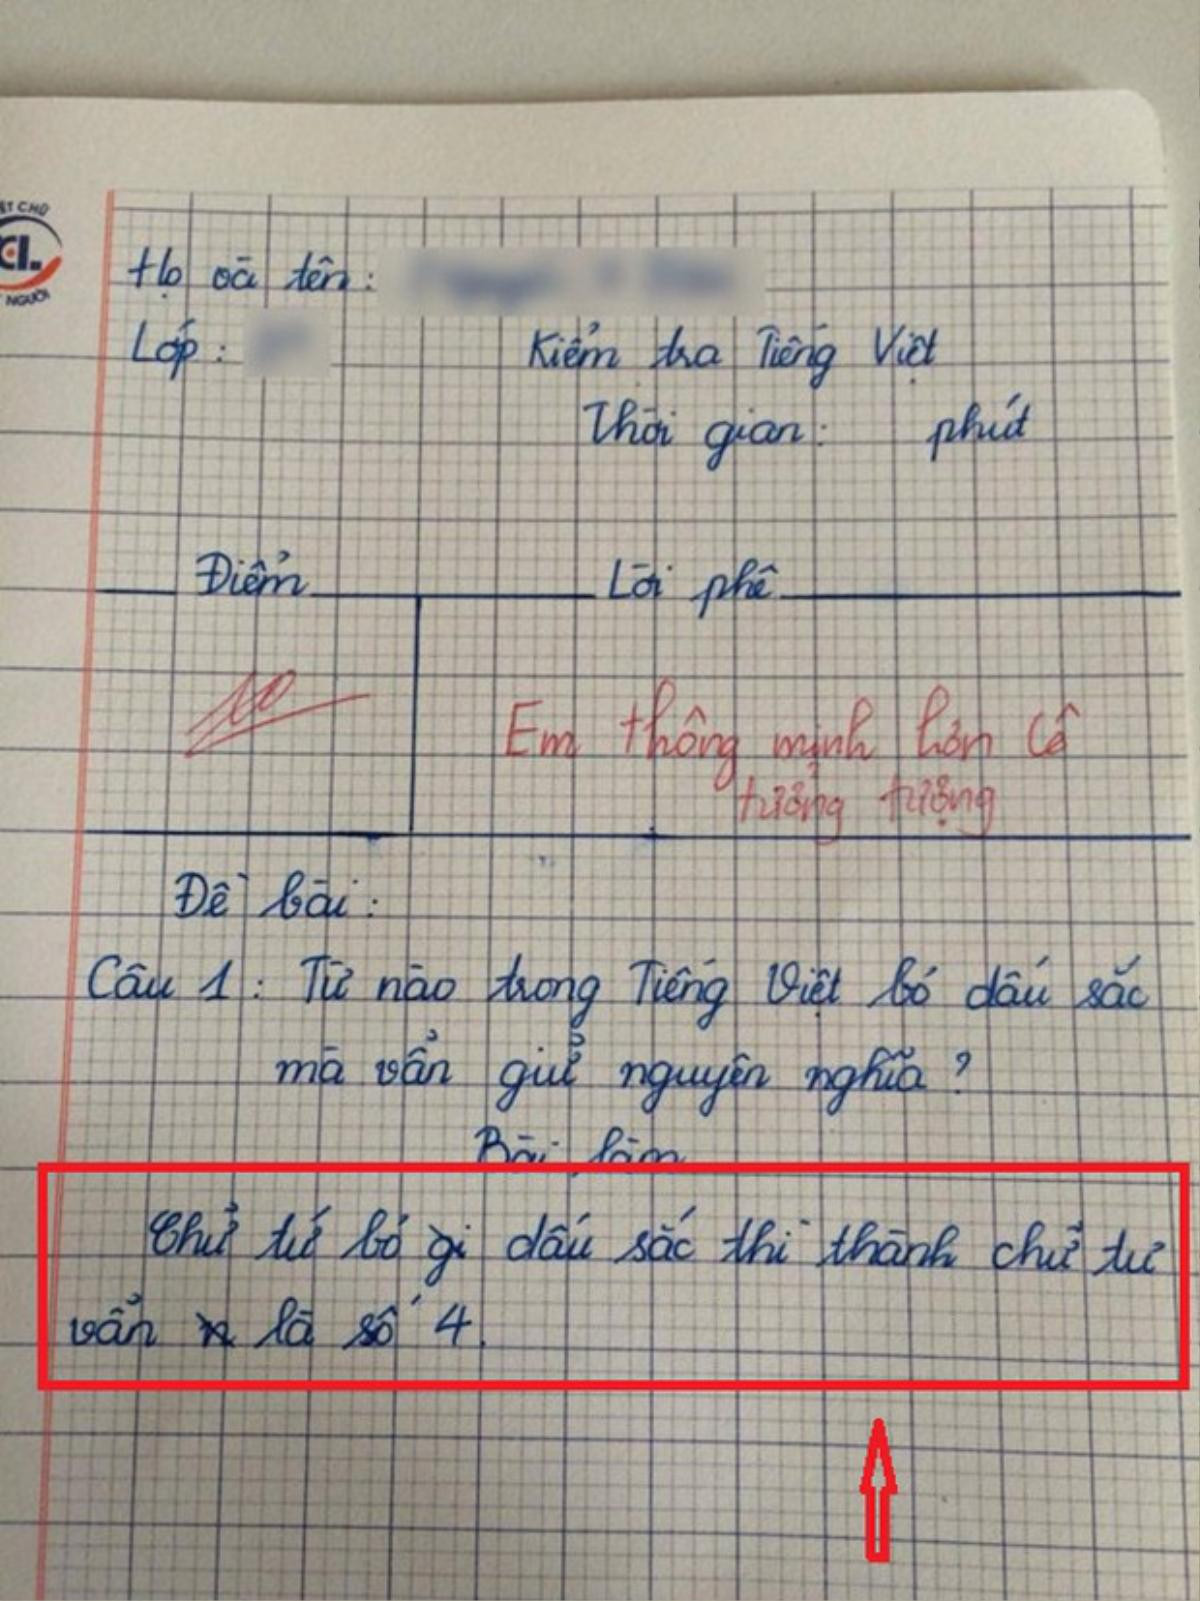 ẾT CHỮ
CL.
NGƯỜI
Họ và tên:
Lớp:
Kiểm tra Tiếng Việt
Thời gian: phút
Điểm
Lời phê
10
Em thông minh hơn cô
tưởng tượng
Đề bài:
Câu 1: Từ nào trong Tiếng Việt bỏ dấu sắc
mà vẩn giử nguyên nghĩa?
Bài làm
Chử tứ bỏ gi dấu sắc thì thành chử tư
vẩn là số 4.